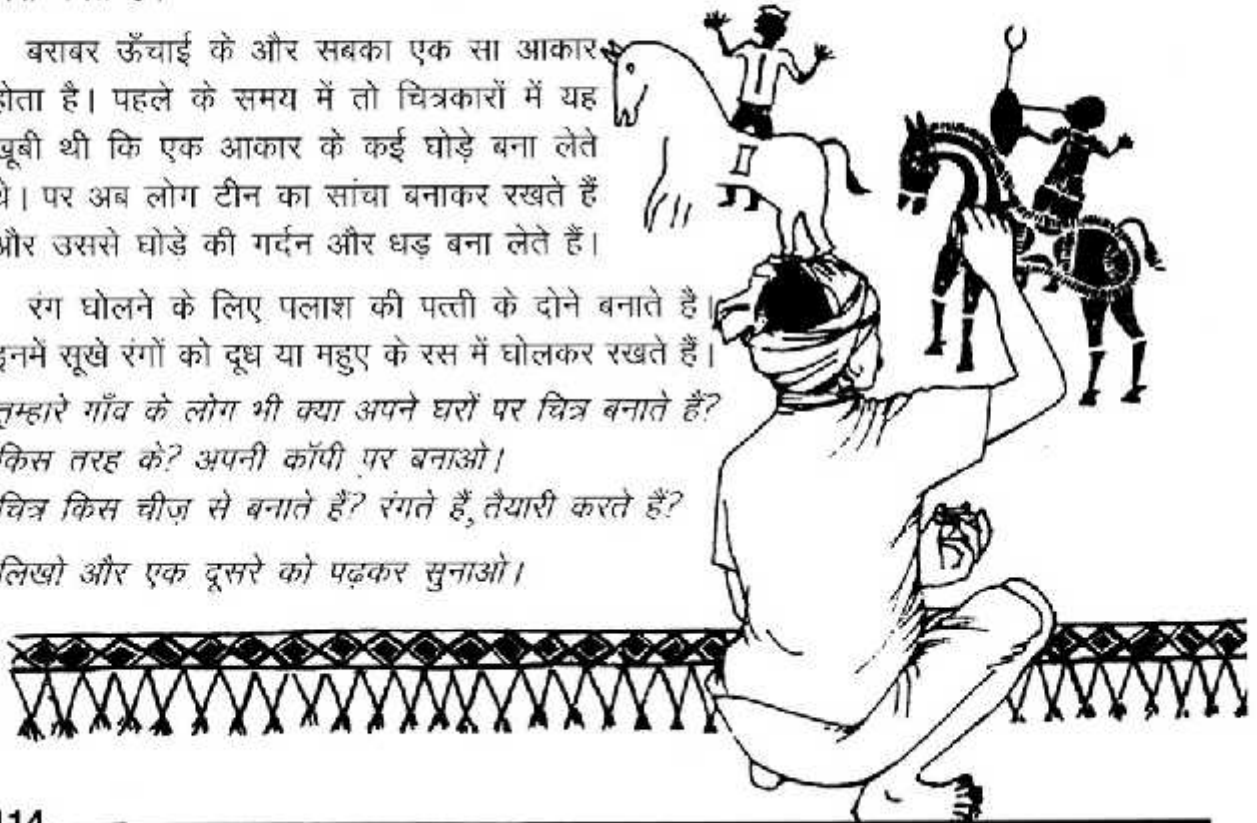 बराबर ऊँचाई के और सबका एक सा आकार
होता है। पहले के समय में तो चित्रकारों में यह
खूबी थी कि एक आकार के कई घोड़े बना लेते
थे। पर अब लोग टीन का सांचा बनाकर रखते हैं
और उससे घोड़े की गर्दन और धड़ बना लेते हैं।
रंग घोलने के लिए पलाश की पत्ती के दोने बनाते है।
इनमें सूखे रंगों को दूध या महुए के रस में घोलकर रखते हैं।
तुम्हारे गाँव के लोग भी क्या अपने घरों पर चित्र बनाते हैं?
किस तरह के? अपनी कॉपी पर बनाओ।
चित्र किस चीज़ से बनाते हैं? रंगते हैं, तैयारी करते हैं?
लिखो और एक दूसरे को पढ़कर सुनाओ।
114